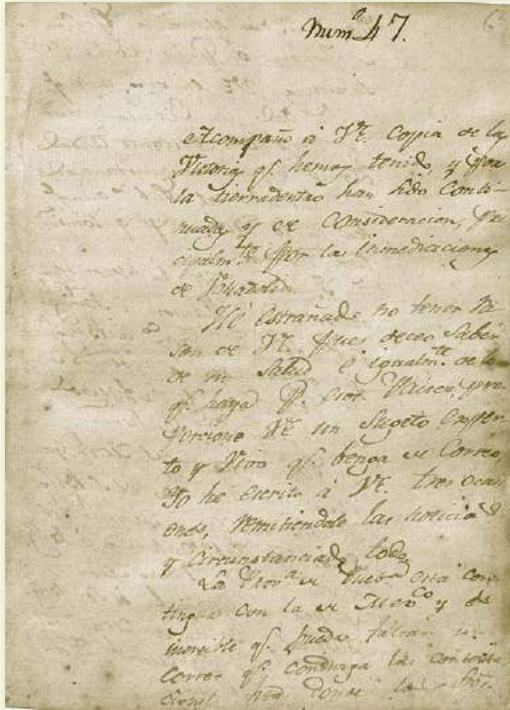 Num.o 47.
Acompaño á VE. Copia de las
Victorias qe. hemos tenido, y por
la tierradentro han sido Conti-
nuadas y de Consideracion,
por las inmediaciones
de Valladolid
He estrañado no tener
de VE. pues deceo saber
de su Salud é igualmte. de lo
qe. haya
porcione VE un Sugeto exper-
to y Vivo qe. benga de Correo
Yo he escrito á VE. tres ocaci
ones, remitiendole las noticias
y Circunstanciado todo
La Prova. de Puebla esta con
tigua con la de Mexco. y es
increible qe. pueda faltar un
correo qe. conduzga las contesta
ciones